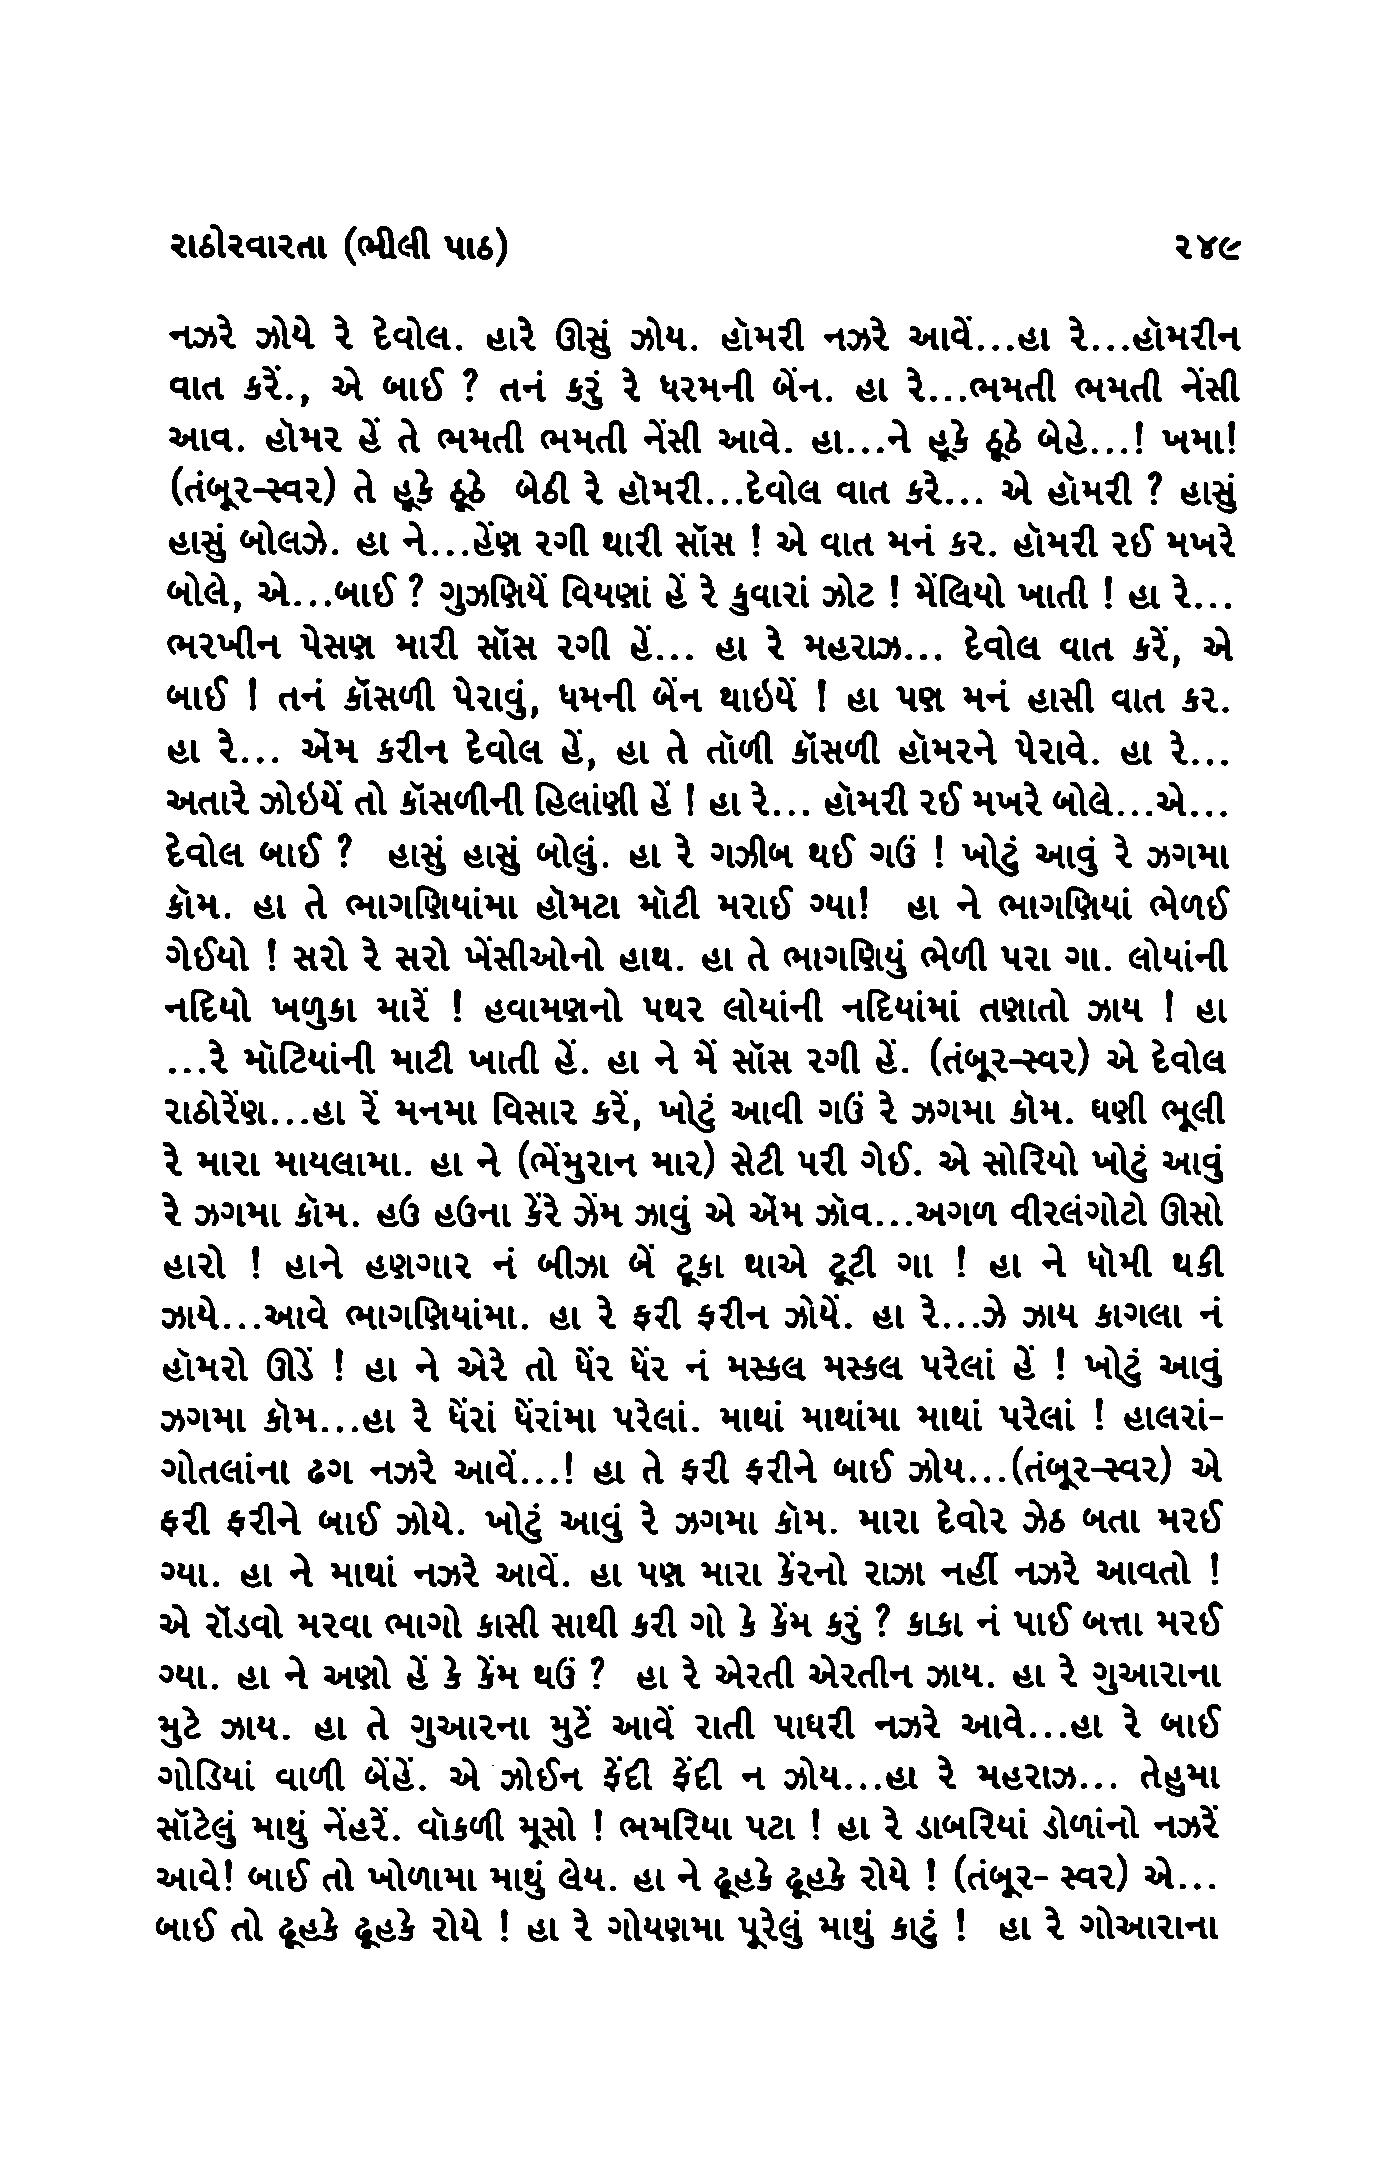 રાઠોરવારતા (ભીલી પાઠ) ૨૪૯
નઝરે ઝોયે રે દેવોલ. હારે ઊસું ઝોય. હૉમરી નઝરે આવેં...હા રે...હૉમરીન
વાત કરેં., એ બાઈ ? તનં કરું રે ધરમની બેંન. હા રે...ભમતી ભમતી નેંસી
આવ. હૉમર હેં તે ભમતી ભમતી નેંસી આવે. હા...ને હૂકે ઠૂઠે બેહે...! ખમા!
(તંબૂર-સ્વર) તે હૂકે ઠૂઠે બેઠી રે હૉમરી...દેવોલ વાત કરે... એ હૉમરી ? હાસું
હાસું બોલઝે. હા ને...હેંણ રગી થારી સૉંસ ! એ વાત મનં કર. હૉમરી રઈ મખરે
બોલે, એ...બાઈ ? ગુઝણિયેં વિયણાં હેં રે કુવારાં ઝોટ ! મેંલિયો ખાતી ! હા રે...
ભરખીન પેસણ મારી સૉંસ રગી હેં... હા રે મહરાઝ... દેવોલ વાત કરેં, એ
બાઈ ! તનં કૉંસળી પેરાવું, ધમની બેંન થાઇયેં ! હા પણ મનં હાસી વાત કર.
હા રે... એંમ કરીન દેવોલ હેં, હા તે તૉળી કૉંસળી હૉમરને પેરાવે. હા રે...
અતારે ઝોઇયેં તો કૉંસળીની હિલાંણી હેં ! હા રે... હૉમરી રઈ મખરે બોલે...એ...
દેવોલ બાઈ ? હાસું હાસું બોલું. હા રે ગઝીબ થઈ ગઉં ! ખોટું આવું રે ઝગમા
કૉમ. હા તે ભાગણિયાંમા હૉમટા મૉટી મરાઈ ગ્યા! હા ને ભાગણિયાં ભેળઈ
ગેઈયો ! સરો રે સરો ખેંસીઓનો હાથ. હા તે ભાગણિયું ભેળી પરા ગા. લોયાંની
નદિયો ખળુકા મારેં ! હવામણનો પથર લોયાંની નદિયાંમાં તણાતો ઝાય ! હા
...રે મૉટિયાંની માટી ખાતી હેં. હા ને મેં સૉંસ રગી હેં. (તંબૂર-સ્વર) એ દેવોલ
રાઠોરેંણ...હા રેં મનમા વિસાર કરેં, ખોટું આવી ગઉં રે ઝગમા કૉમ. ધણી ભૂલી
રે મારા માયલામા. હા ને (ભેંમુરાન માર) સેટી પરી ગેઈ. એ સોરિયો ખોટું આવું
રે ઝગમા કૉમ. હઉ હઉના કેંરે ઝેંમ ઝાવું એ એંમ ઝૉવ...અગળ વીરલંગોટો ઊસો
હારો ! હાને હણગાર નં બીઝા બેં ટૂકા થાએ ટૂટી ગા ! હા ને ધૉમી થકી
ઝાયે...આવે ભાગણિયાંમા. હા રે ફરી ફરીન ઝોયેં. હા રે...ઝે ઝાય કાગલા નં
હૉમરો ઊડેં ! હા ને એરે તો ધેંર ધેંર નં મસ્કલ મસ્કલ પરેલાં હેં ! ખોટું આવું
ઝગમા કૉમ...હા રે ધેંરાં ધેંરાંમા પરેલાં. માથાં માથાંમા માથાં પરેલાં ! હાલરાં-
ગોતલાંના ઢગ નઝરે આવેં...! હા તે ફરી ફરીને બાઈ ઝોય...(તંબૂર-સ્વર) એ
ફરી ફરીને બાઈ ઝોયે. ખોટું આવું રે ઝગમા કૉમ. મારા દેવોર ઝેઠ બતા મરઈ
ગ્યા. હા ને માથાં નઝરે આવેં. હા પણ મારા કેંરનો રાઝા નહીં નઝરે આવતો !
એ રૉંડવો મરવા ભાગો કાસી સાથી કરી ગો કે કેંમ કરું ? કાકા નં પાઈ બત્તા મરઈ
ગ્યા. હા ને અણો હેં કે કેંમ થઉં ? હા રે એરતી એરતીન ઝાય. હા રે ગુઆરાના
મુટે ઝાય. હા તે ગુઆરના મુટેં આવેં રાતી પાઘરી નઝરે આવે...હા રે બાઈ
ગોડિયાં વાળી બેંહેં. એ ઝોઈન ફેંદી ફેંદી ન ઝોય...હા રે મહરાઝ... તેહુમા
સૉંટેલું માથું નેંહરેં. વૉકળી મૂસો ! ભમરિયા પટા ! હા રે ડાબરિયાં ડોળાંનો નઝરેં
આવે! બાઈ તો ખોળામા માથું લેય. હા ને ઢૂહકે ઢૂહકે રોયે ! (તંબૂર- સ્વર) એ...
બાઈ તો ઢૂહકે ઢૂહકે રોયે ! હા રે ગોયણમા પૂરેલું માથું કાટું ! હા રે ગોઆરાના